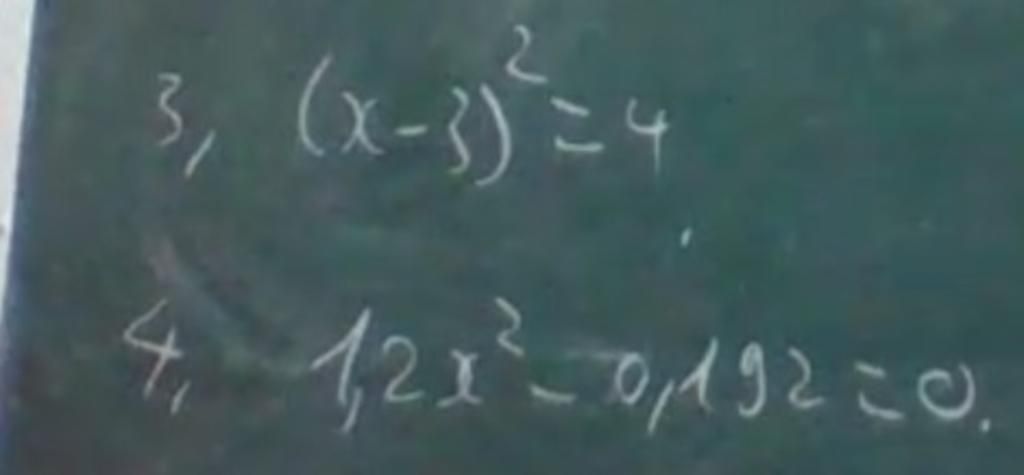 3, (x-3)² = 4
4, 1,2x² - 0,192 = 0.